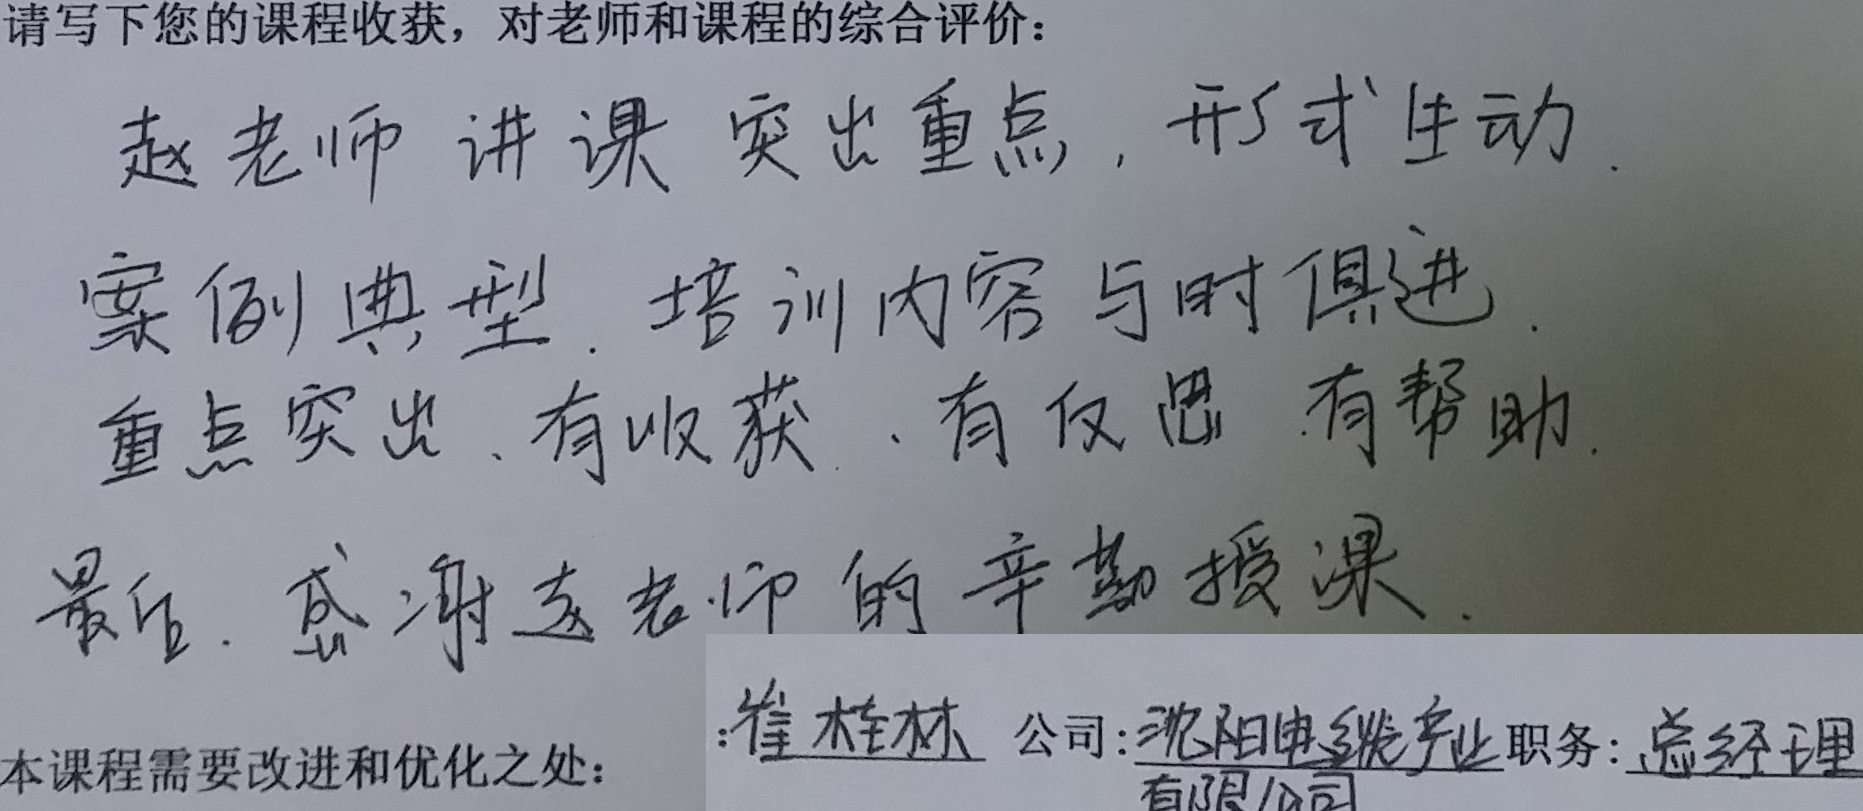 请写下您的课程收获，对老师和课程的综合评价：
赵老师讲课突出重点，形式生动.
案例典型.培训内容与时俱进.
重点突出、有收获、有反思 有帮助.
最后.感谢赵老师的辛勤授课.
:崔桂林 公司:沈阳电缆产业 职务:总经理
有限公司
本课程需要改进和优化之处：